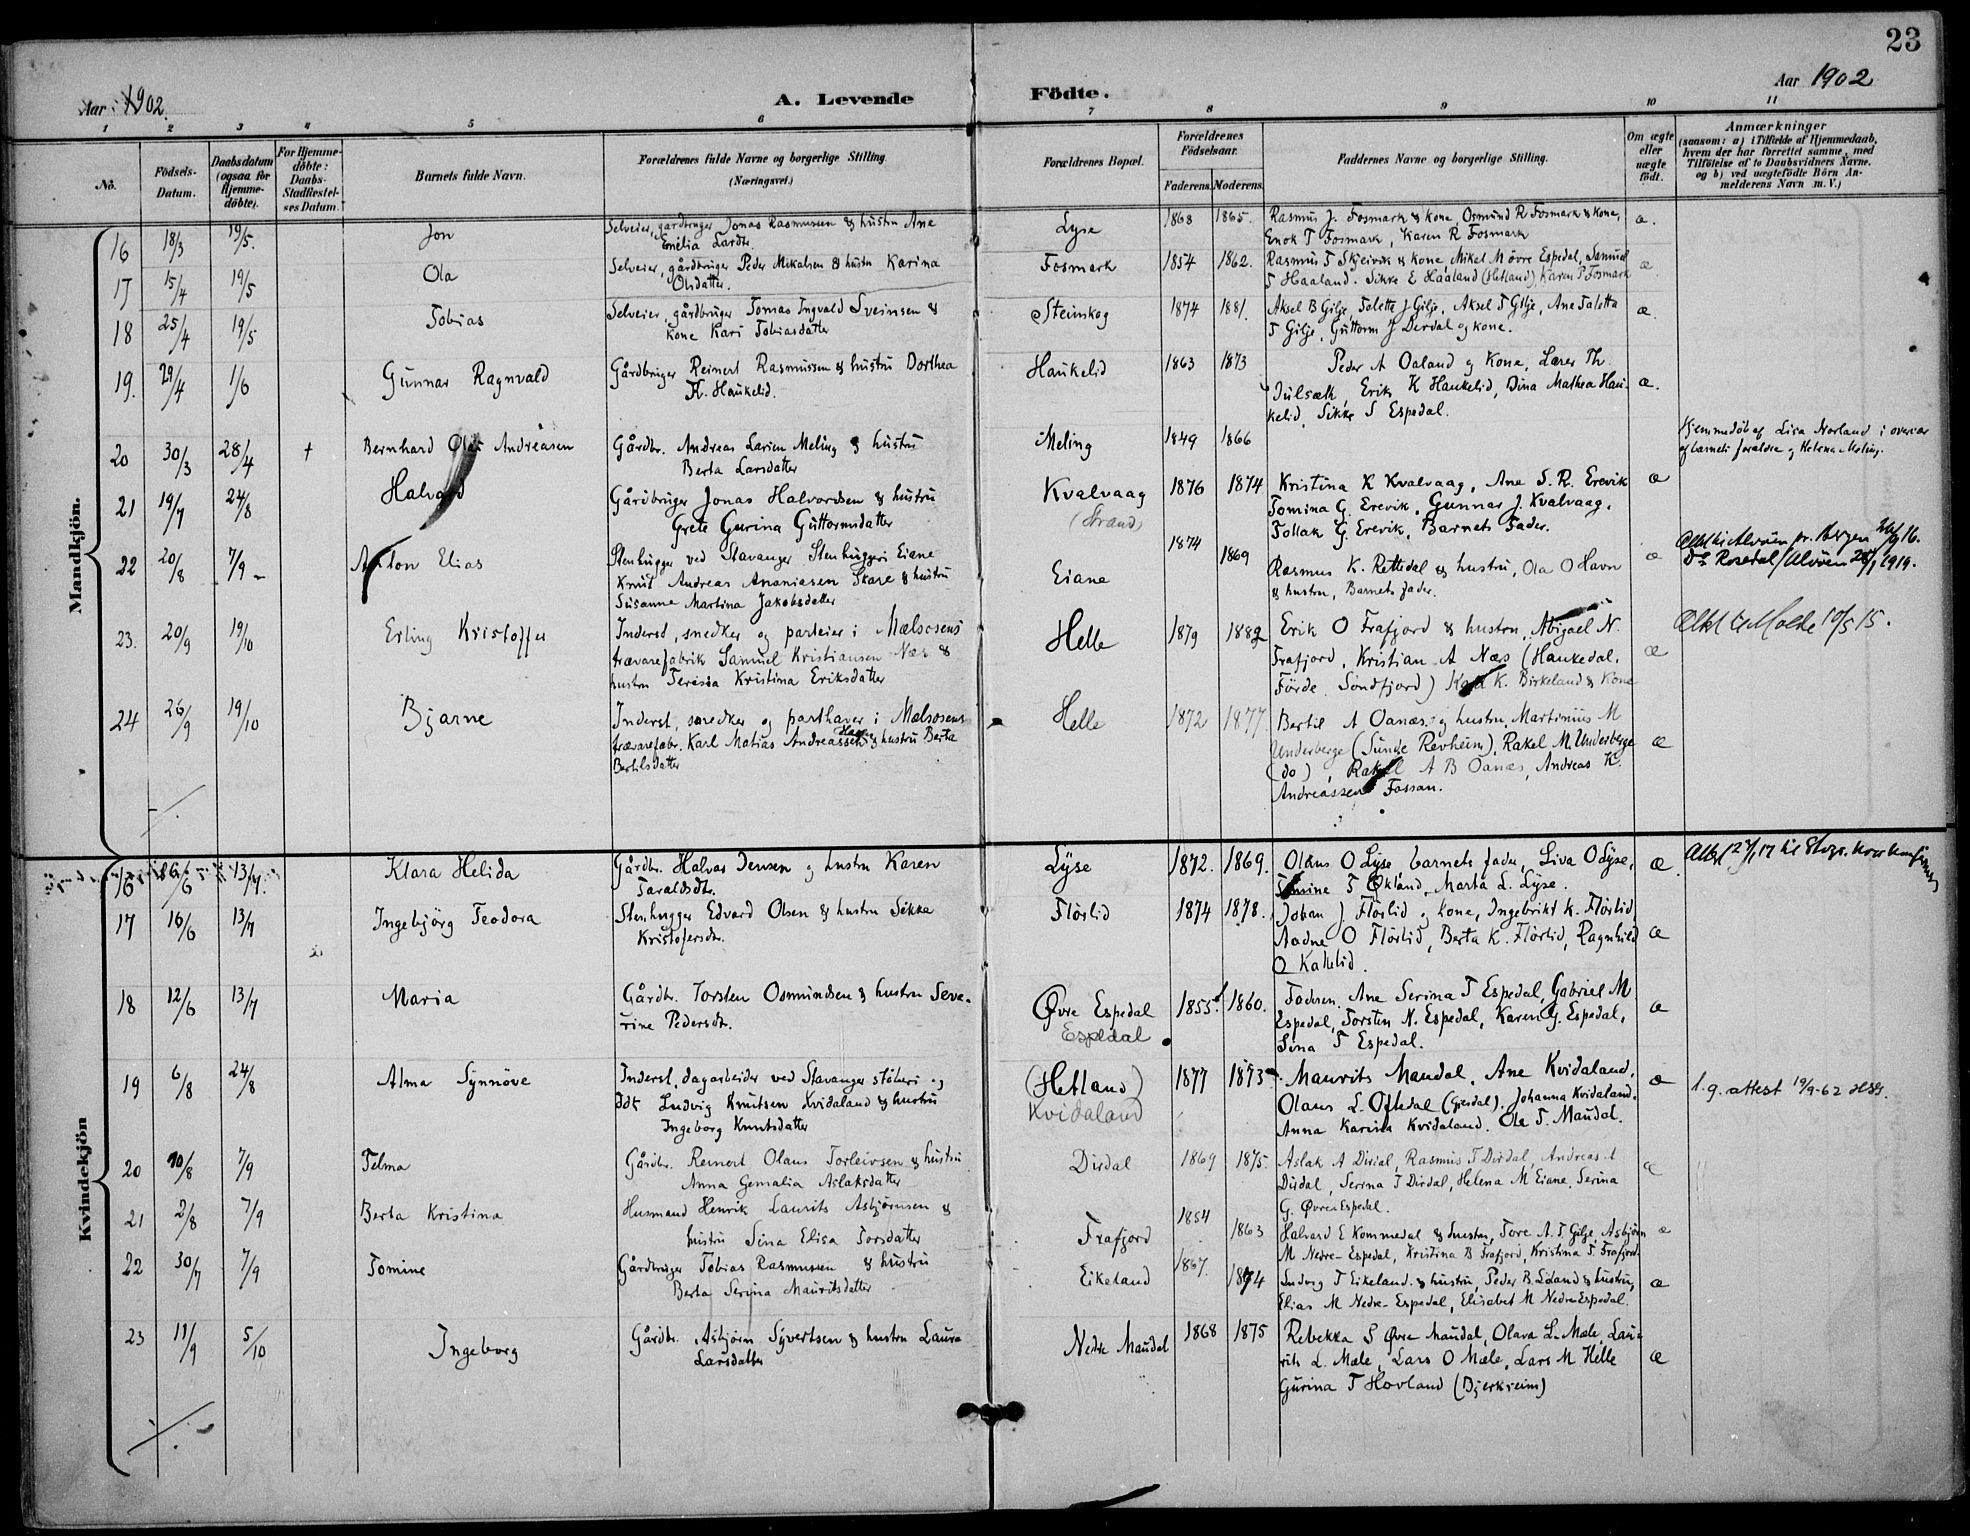 23
Aar 1902. A. Levende Födte. Aar 1902
1 2 3 4 5 6 7 8 9 10 11
No.
Födsels-
Datum.
Daabsdatum
(ogsaa for
Hjemme-
döbte).
For Hjemme-
döbte:
Daabs-
Stadfæstel-
ses Datum.
Barnets fulde Navn.
Forældrenes fulde Navne og borgerlige Stilling.
(Næringsvei.)
Forældrenes Bopæl.
Forældrenes
Födselsaar.
Faderens. Moderens.
Faddernes Navne og borgerlige Stilling.
Om ægte
eller
uægte
födt.
Anmærkninger
(saasom: a) i Tilfælde af Hjemmedaab,
hvem der har forrettet samme, med
Tilföielse af to Daabsvidners Navne,
og b) ved uægtefödte Börn An-
melderens Navn m. V.)
Mandkjön.
16 18/3 19/5. Jon
Selveier, gårdbruger Jonas Rasmussen & hustru Ane
Emilia Larsdtr.
Lyse 1868 1865.
Rasmus J. Fosmark & kone, Osmund R Fosmark & kone,
Enok T Fosmark, Karen R Fosmark
æ.
17 15/4 19/5 Ola
Selveier, gårdbruger Peder Mikalsen & hustru Karina
Olsdatter.
Fosmark 1854 1862.
Rasmus T Skjeivik & kone, Mikel M övre Espedal, Samuel
T Haaland. Sikke E Haaland (Hetland), Karen P Fosmark
æ
18 25/4 19/5 Tobias
Selveier, gårdbruger Tomas Ingvald Sveinsen &
kone Kari Tobiasdatter
Steinskog 1874 1881.
Aksel B Gilje, Talette J Gilje, Aksel T Gilje, Ane Taletta
T Gilje, Guttorm J Dirdal og kone.
æ.
19. 29/4 1/6 Gunnar Ragnvald
Gårdbruger Reinert Rasmussen & hustru Dorthea
K. Haukelid.
Haukelid 1863 1873
Peder A Oaland og kone, Lærer Th.
Julsæth, Erik K Haukelid, Dina Mathea Hau-
kelid, Sikke S Espedal.
æ.
20 30/3 28/4 + Bernhard Olai Andreasen
Gårdbr. Andreas Larsen Meling & hustru
Berta Larsdatter
Meling 1849 1866
Hjemmedöb af Lisa Norland i overvær
af barnets forældre og Helena Meling.
21 19/7 24/8 Halvard
Gårdbruger Jonas Halvordsen & hustru
Grete Gurina Guttormsdatter
Kvalvaag
(Strand)
1876 1874
Kristina K Kvalvaag, Ane S. R. Erevik
Tomina G. Erevik, Gunnar J. Kvalvaag,
Follak G. Erevik, Barnets Fader.
æ
22 20/8 7/9 Anton Elias
Stenhugger ved Stavanger Stenhuggeri Eiane
Knut Andreas Ananiasen Skare & hustru
Susanne Martina Jakobsdatter
Eiane 1874 1869
Rasmus K. Rettedal & hustru, Ola O Havn
& hustru, Barnets fader.
æ
23. 20/9 19/10 Erling Kristoffer
Inderst, snedker og parteier i Mælsosens
trævarefabrik Samuel Kristiansen Næs &
hustru Teresia Kristina Eriksdatter
Helle 1879 1882
Erik O Frafjord & hustru, Abigael N.
Frafjord, Kristian A Næss (Haukedal,
Förde, Söndfjord) K. Birkeland & Kone
æ
24 26/9 19/10 Bjarne
Inderst, snedker og parthaver i Mælsosens
trævarefabr. Karl Matias Andreassen & hustru Berta
Bertilsdatter
Helle 1872 1877
Bertil A Oanæs og hustru, Martinius M
Underberge (Sunde Revheim), Rakel M. Underberge
(do), Rakel A B Oanæs, Andreas K.
Andreassen Fossan.
æ
Kvindekjön
16 26/6 13/7. Klara Helida
Gårdbr. Halvar Jensen og hustru Karen
Taraldsdtr.
Lyse 1872. 1869.
Olaus O Lyse, barnets fader, Siva O Lyse,
T Økland, Marta L. Lyse.
æ.
17 16/6 13/7 Ingebjörg Teodora
Stenhugger Edvard Olsen & hustru Sikka
Kristofersdtr.
Flörlid 1874 1878.
Johan J Flörlid og kone, Ingebrikt K. Flörlid,
Aadne O Flörlid, Berta K. Flörlid, Ragnhild
O Kallelid.
æ
18 12/6 13/7 Maria
Gårdbr. Torsten Osmundsen & hustru Seve-
rine Pedersdtr.
Øvre Espedal
Espedal
1855. 1860.
Faderen, Ane Serina T Espedal, Gabriel M
Espedal, Torsten N. Espedal, Karen G. Espedal,
Sina T Espedal.
æ
19 6/8 24/8 Alma Synnöve
Inderst, dagarbeider ved Stavanger stöberi og
Ludvig Knutsen Kvidaland & hustru
Ingeborg Knutsdatter
(Hetland)
Kvidaland
1877 1873
Maurits Maudal, Ane Kvidaland,
Olaus L. Oftedal (Gjesdal), Johanna Kvidaland,
Anna Karina Kvidaland, Ole T. Maudal.
æ
l.g. attest 19/9-62
20 10/8 7/9 Telma
Gårdbr. Reinert Olaus Torleivsen & hustru
Anna Gemalia Aslaksdatter
Dirdal 1869 1875.
Aslak A Dirdal, Rasmus T Dirdal, Andreas A
Dirdal, Serina T Dirdal, Helena M Eiane, Serina
G. Øvre Espedal.
æ
21 2/8 7/9 Berta Kristina
Husmand Henrik Laurits Asbjörnsen &
hustru Sina Elisa Torsdatter
Frafjord 1854 1863
Halvard E Kommedal & hustru, Tore A. T Gilje, Asbjörn
M Nedre-Espedal, Kristina B Frafjord, Kristina T. Frafjord
æ
22 30/7 7/9 Tomine
Gårdbruger Tobias Rasmussen & hustru
Berta Serina Mauritsdatter
Eikeland 1867. 1874
Ludvig T Eikeland & hustru, Peder B. Eiland & hustru,
Elias M Nedre-Espedal, Elisabet M Nedre Espedal.
æ
23 11/9 5/10 Ingeborg
Gårdbr. Asbjörn Syvertsen & hustru Laura
Larsdatter
Nedre Maudal 1868 1875
Rebekka S Øvre Maudal, Olava L. Mæle, Lau-
rits L. Mæle, Lars O Mæle, Lars M Helle
Gurina T Hovland (Bjerkreim)
æ